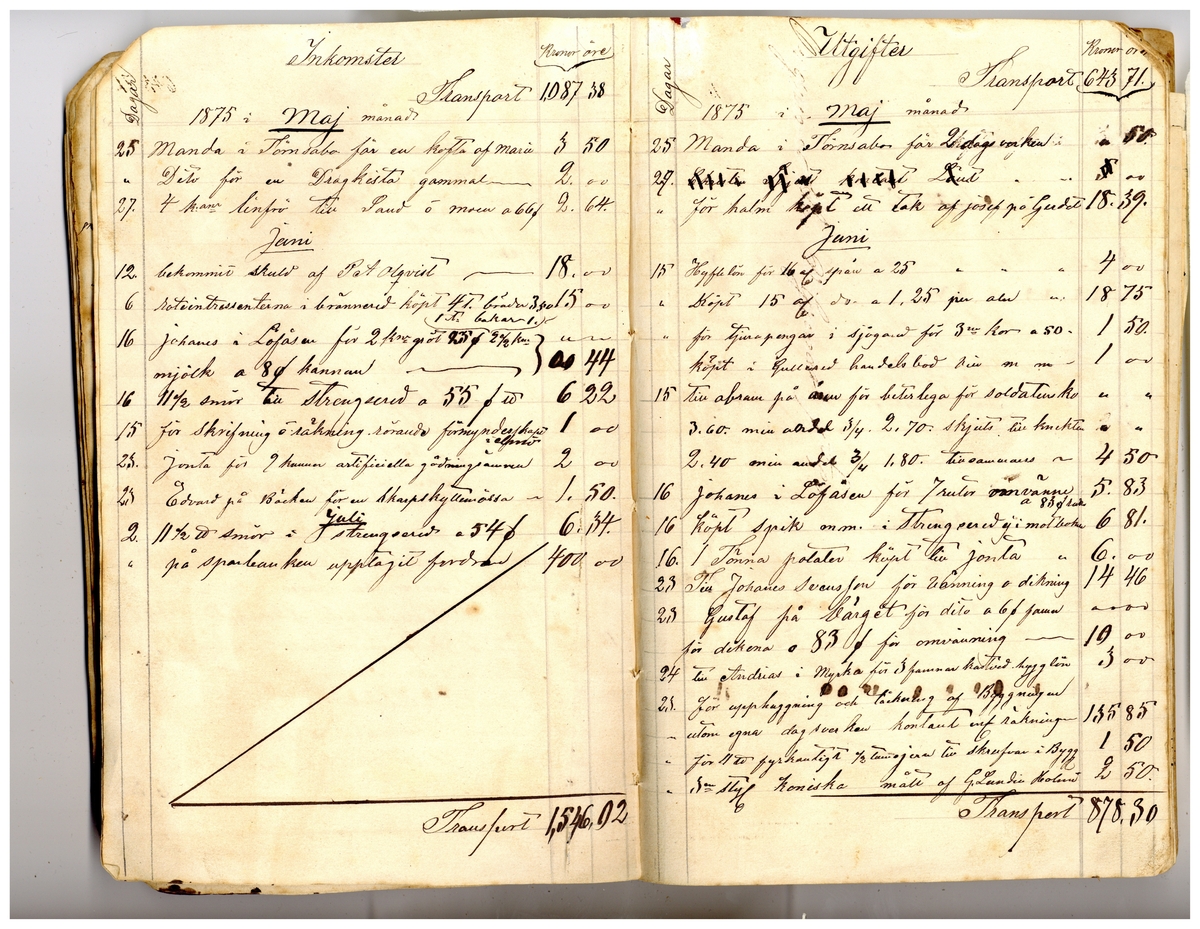 Inkomster
Kronor öre
Dagar
Transport 1,087 38
1875 i Maj månad
25 Manda i Törnsabo för en kofta af maria 3 50
" Dito för en Dragkista gammal 2. 00
27. 4 k:anr linfrö till Sand ö moen a 66 2. 64.
Juni
12. bekommit skuld af P A Olqvist 18. 00
6 roteintressenterna i brännered köpt 4 T. bräder 15 00
1 Ti bakar 1.
16 Johanes i Löfåsen för 2 k:nr gröt 25 ₰ 2½ k:nr " "
mjölk a 8 ₰ kannan 00 44
16 11½ smör till Strengsered a 55 ₰ 6 22
15 för skrifning ö räkning rörande förmynderskapet 1 00
23. Jonta för 2 kannor artificiella gödningsämnen 2 00
23 Edvard på Bäcken för en skarpskyttemössa 1. 50.
juli
2. 11½ smör i strengsered a 54 ₰ 6. 34.
" på sparbanken upptagit fordran 400 00
Transport 1,546,02
Utgifter
Kronor öre
Dagar
Transport 643 71.
1875 i Maj månad
25 Manda i Törnsabo för 2 dagsverken " 50.
27.
" för halm köpt till tak af josef på Gerdet 18. 39.
Juni
15 Hyflelön för 16 af spån a 25 " " " 4 00
" Köpt 15 af do a 1,25 per aln " 18 75
" för tjurapengar i sjögared för 3:ne kor a 50 1 50.
köpt i Gullered handelsbod m m 1 00
15 till abram på för beterlega för soldatens ko " "
3.60. min andel 3/4 2,70. skjuts till knekten " "
2.40 min andel 3/4 1.80. tillsammans 4 50
16 Johanes i Löfåsen för 7 rutor omvänne 5. 83
a 83 ₰ rutan
16 köpt spik m.m. i Strengsered i motboken 6 81.
16. 1 Tönna potater köpt till jonta " 6. 00
23 Till Johanes Svensson för vänning o dikning 14 46
23 Gustaf på Bärget för dito a 6 ₰ famn
för dikena o 83 ₰ för omvänning 19 00
24 till Andrias i Myrka för 3 famnar kastved hygglön 3 00
23. för upphuggning och täckning af Bygningen
" utom egna dagsverken kontant enl räkningen 135 85
" för 4 fyrkantigt ½ tumsjern till skrufvar i Bygg 1 50
" 3:ne styc Koniska mått af G Lundin 2 50.
Transport 878.30